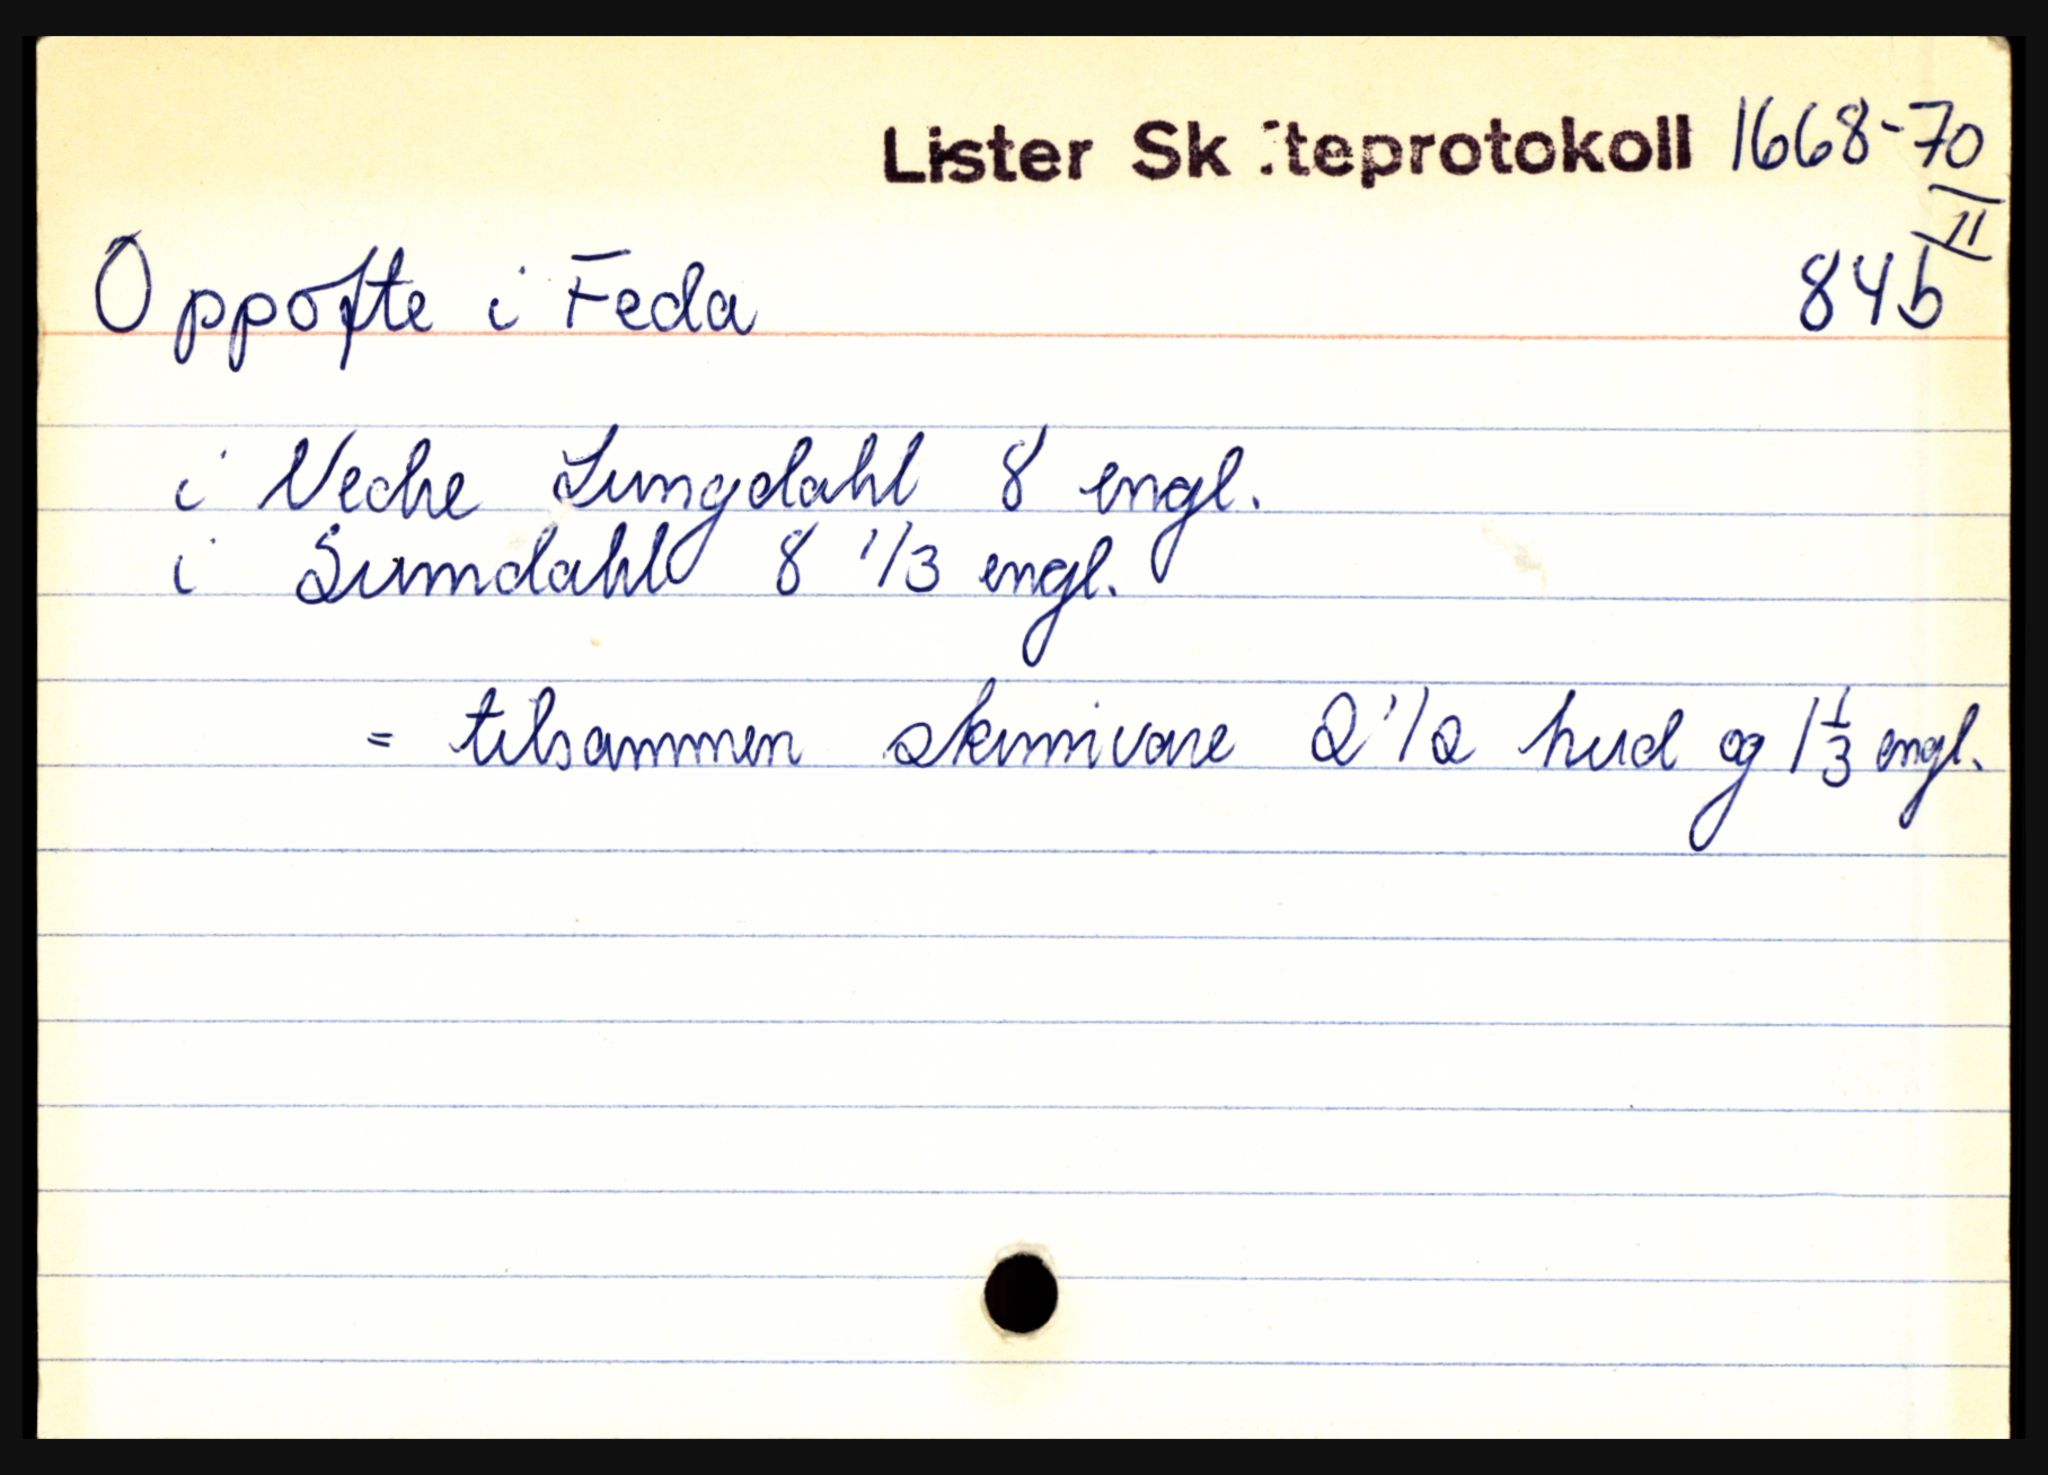 Lister Sk teprotokoll 1668-70
II
Oppofte i Feda 84b
i Neche Lungdahl 8 engl.
i Sumdahl 8 1/3 engl.
= tilsammen skinnivare 2 1/2 hud og 1 1/3 engl.